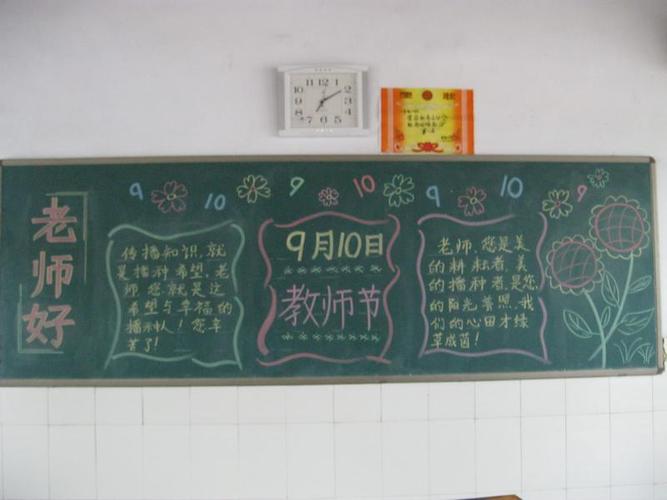 12
11
1
10
2
9
3
8
4
7
5
6
9
10
9
10
9
10
9
老师好
传播知识,就
是播种希望,老
师,您就是这
希望与幸福的
播种人!您辛
苦了!
9月10日
教师节
老师,您是美
的耕耘者,美
的播种者,是您
的阳光普照,我
们的心田才绿
草成茵!